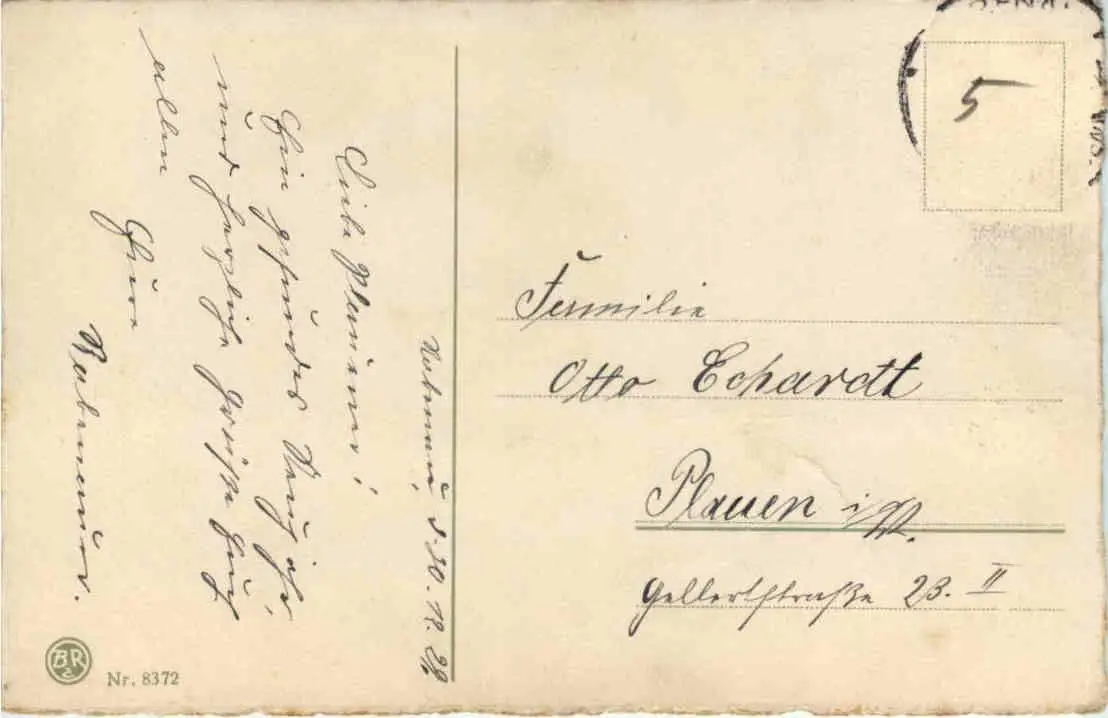 Rabenau, d. 30. 12. 29
Liebe Plauener!
Ein gesundes Neujahr,
und herzliche Grüße Euch
allen
Eure
Rabenauer.
5
Familie
Otto Echardt
Plauen i/V.
Gellertstraße 23. II
BR
Nr. 8372